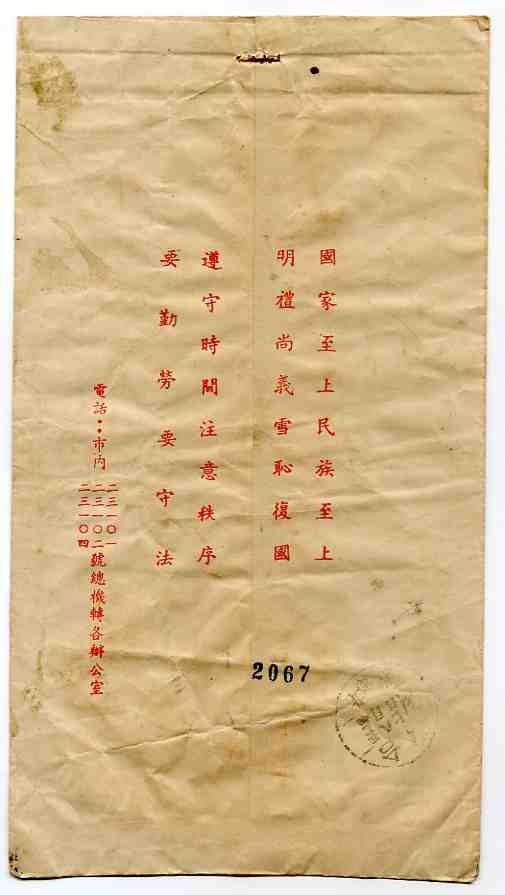 國家至上民族至上
明禮尚義雪恥復國
遵守時間注意秩序
要勤勞要守法
電話：市內
二三一〇一
二三一〇二
二三一〇四
號總機轉各辦公室
2067